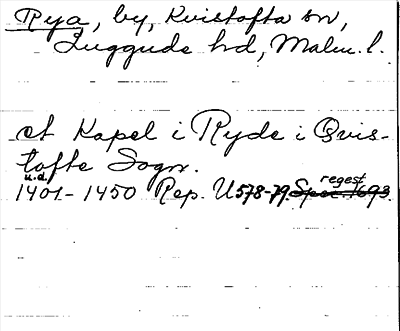 Rya, by, Kvistofta sn,
Luggude hd, Malm. l.
et Kapel i Ryde i Qvis-
tofte Sogn.
u.d. regest
1401-1450 Rep. U 578-79. Spec. 1693.